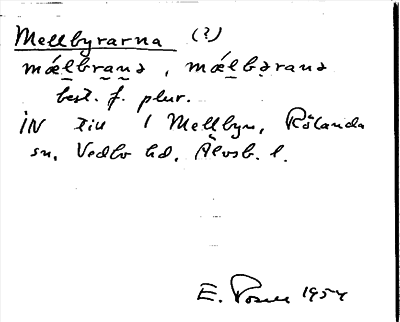 Mellbyrarna (?)
mǽlbrana, mǽlbərana
best. f. plur.
IN till 1 Mellbyn, Rölanda
sn, Vedbo hd, Älvsb. l.
E. 1954